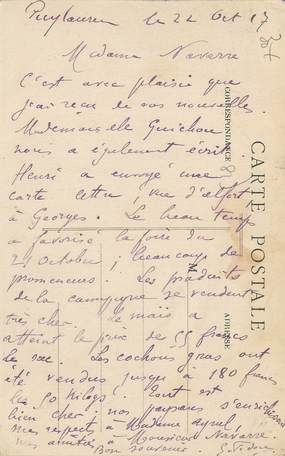 Puylaurens le 22 Oct 17
Madame Navarre
C'est avec plaisir que
j'ai reçu de vos nouvelles.
Mademoiselle Guichou
nous a également écrit.
Henri a envoyé une
carte lettre, vue d'
à Georges. Le beau temps
a favorisé la foire du
21 Octobre ; beaucoup de
promeneurs. Les produits
de la campagne se vendent
très cher. Le maïs a
atteint le prix de 55 francs
le sac. Les cochons gras ont
été vendus jusqu'à 180 francs
les 50 kilogs. Tout est
bien cher ; nos paysans s'enrichissent
mes respects à Madame
mes amitiés à Monsieur Navarre.
Bon souvenir.
CARTE POSTALE
CORRESPONDANCE
ADRESSE
M